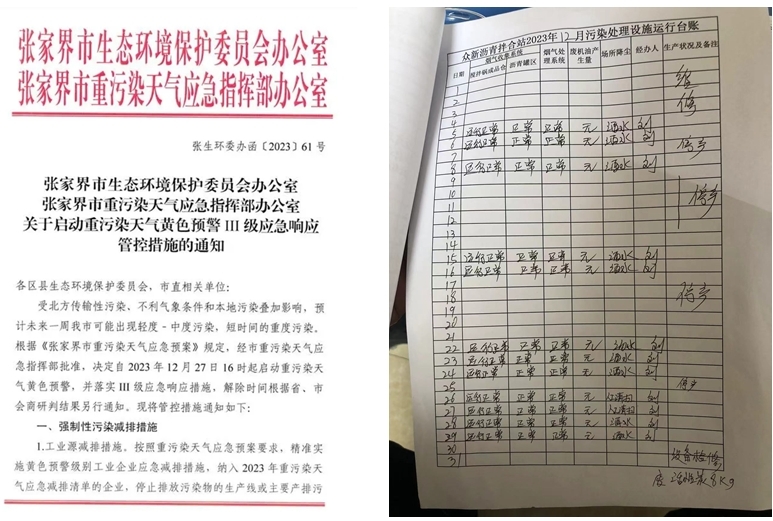 张家界市生态环境保护委员会办公室
张家界市重污染天气应急指挥部办公室
张生环委办函〔2023〕61号
张家界市生态环境保护委员会办公室
张家界市重污染天气应急指挥部办公室
关于启动重污染天气黄色预警III级应急响应
管控措施的通知
各区县生态环境保护委员会,市直相关单位:
受北方传输性污染、不利气象条件和本地污染叠加影响,预
计未来一周我市可能出现轻度-中度污染,短时间的重度污染。
根据《张家界市重污染天气应急预案》规定,经市重污染天气应
急指挥部批准,决定自2023年12月27日16时起启动重污染天
气黄色预警,并落实III级应急响应措施,解除时间根据省、市
会商研判结果另行通知。现将管控措施通知如下:
一、强制性污染减排措施
1.工业源减排措施。按照重污染天气应急预案要求,精准实
施黄色预警级别工业企业应急减排措施,纳入2023年重污染天
气应急减排清单的企业,停止排放污染物的生产线或主要产排污
众新沥青拌合站2023年12月污染处理设施运行台账
日期 烟气收集系统 烟气处理系统 废机油产生量 场所降尘 经办人 生产状况及备注
搅拌锅成品仓 沥青罐区
1
2 维
3 修
4
5 运行正常 正常 正常 无 洒水 刘
6 运行正常 正常 正常 无 洒水 刘 停产
7
8 运行正常 正常 正常 无 洒水 刘
9
10
11 停产
12
13
14
15 运行正常 正常 正常 无 洒水 刘
16 运行正常 正常 正常 无 洒水 刘
17
18 停产
19
20
21
22 运行正常 正常 正常 无 洒水 刘
23 运行正常 正常 正常 无 洒水 刘
24 运行正常 正常 正常 无 洒水 刘
25 停产
26 运行正常 正常 正常 无 刘
27 运行正常 正常 正常 无 刘
28 运行正常 正常 正常 无 洒水 刘
29 运行正常 正常 正常 无 洒水 刘
30
31 设备检修
废活性炭8Kg